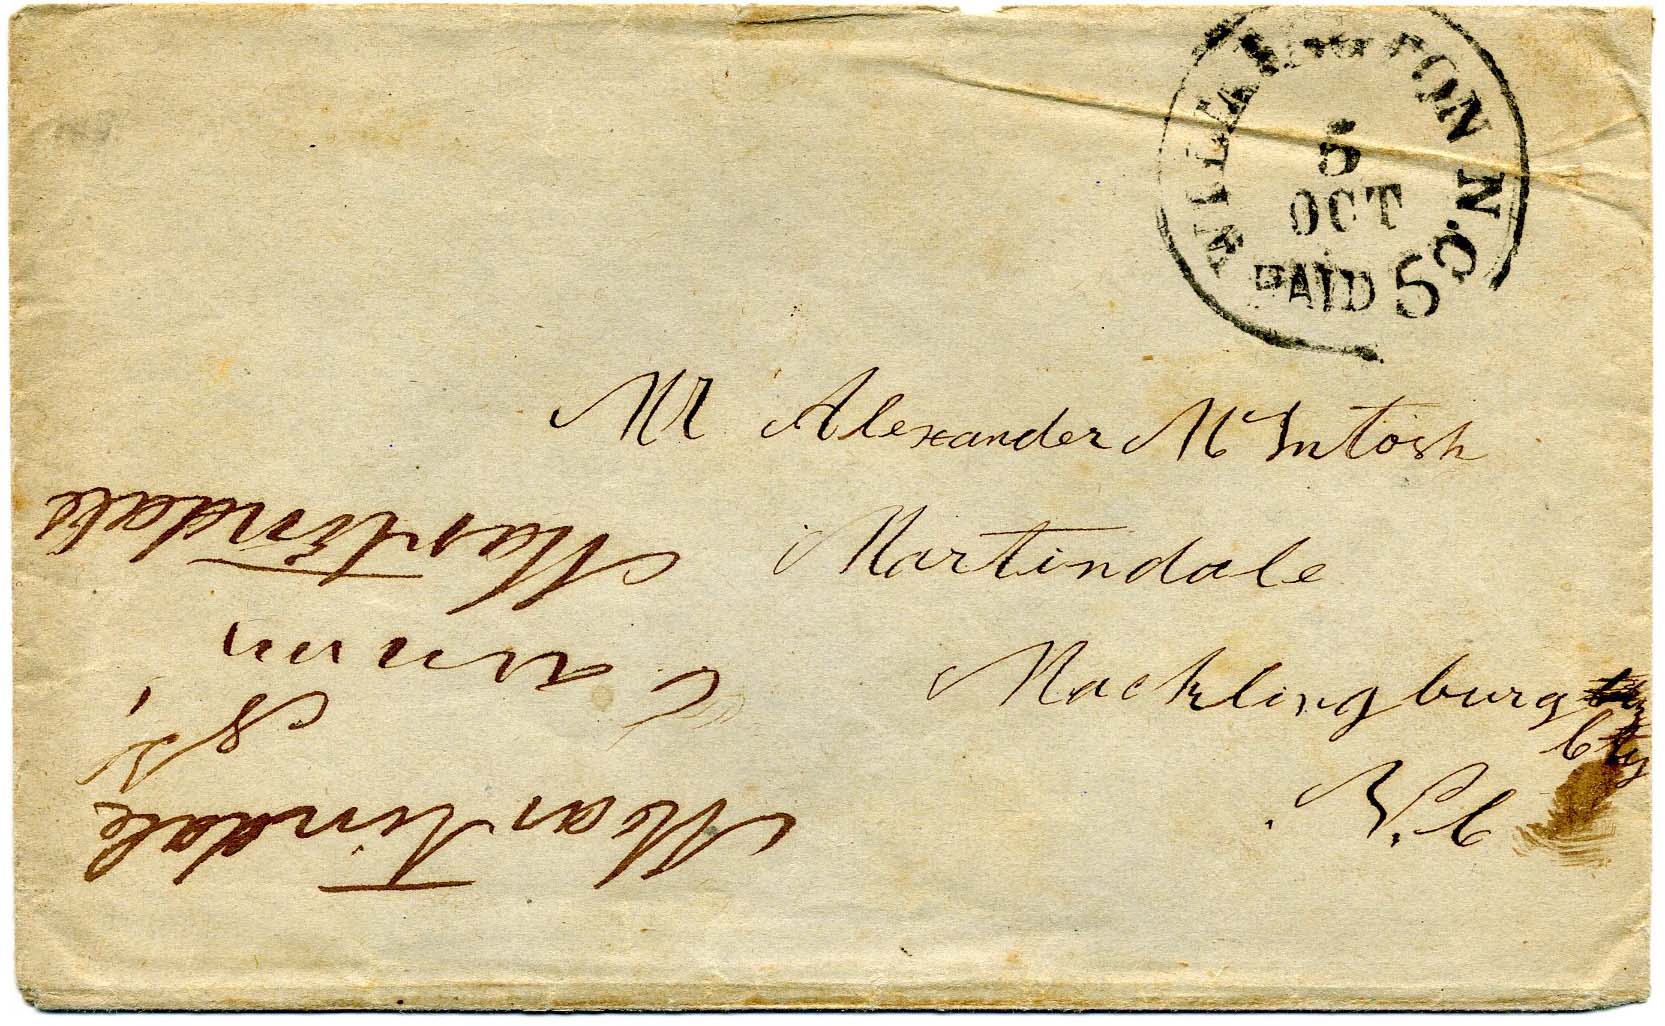 WILMINGTON N.C.
5
OCT
PAID 5
Mr Alexander McIntosh
Martindale
Macklingburg
Cty
N.C
Martindale
Martindale